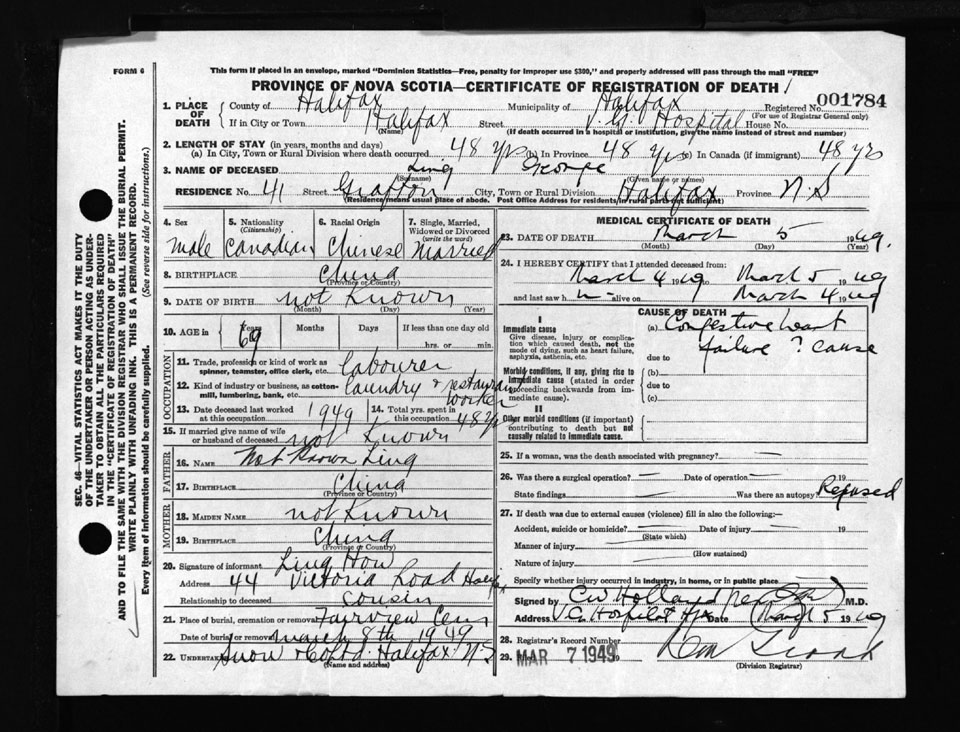 FORM 6
This form if placed in an envelope, marked "Dominion Statistics—Free, penalty for improper use $300," and properly addressed will pass through the mail "FREE"
PROVINCE OF NOVA SCOTIA—CERTIFICATE OF REGISTRATION OF DEATH
1. PLACE OF DEATH
County of Halifax Municipality of Halifax Registered No. 001784
(For use of Registrar General only)
If in City or Town Halifax Street V.G. Hospital House No.
(Name) (If death occurred in a hospital or institution, give the name instead of street and number)
2. LENGTH OF STAY (in years, months and days)
(a) In City, Town or Rural Division where death occurred 48 yrs (b) In Province 48 yrs (c) In Canada (if immigrant) 48 yrs
3. NAME OF DECEASED Ling George
(Surname) (Given name or names)
RESIDENCE No. 41 Street Grafton City, Town or Rural Division Halifax Province N.S
(Residence means usual place of abode. Post Office Address for residents in rural parts not sufficient)
4. Sex male
5. Nationality (Citizenship) Canadian
6. Racial Origin Chinese
7. Single, Married, Widowed or Divorced (write the word) Married
8. BIRTHPLACE China
(Province or Country)
9. DATE OF BIRTH not known
(Month) (Day) (Year)
10. AGE in Years 69 Months Days If less than one day old
hrs. or min.
OCCUPATION
11. Trade, profession or kind of work as spinner, teamster, office clerk, etc. labourer
12. Kind of industry or business, as cotton-mill, lumbering, bank, etc. laundry & restaurant worker
13. Date deceased last worked at this occupation 1949
14. Total yrs. spent in this occupation 48 yrs
15. If married give name of wife or husband of deceased not known
FATHER
16. NAME Not known Ling
17. BIRTHPLACE China
(Province or Country)
MOTHER
18. MAIDEN NAME not known
19. BIRTHPLACE China
(Province or Country)
20. Signature of informant Ling How
Address 44 Victoria Road Halifax
Relationship to deceased cousin
21. Place of burial, cremation or removal Fairview Cem
Date of burial or removal March 8th 1949
22. Undertaker Snow & Co Ltd. Halifax N.S
(Name and address)
MEDICAL CERTIFICATE OF DEATH
23. DATE OF DEATH March 5 1949.
(Month) (Day) (Year)
24. I HEREBY CERTIFY that I attended deceased from:
March 4 1949 March 5 1949
and last saw h m alive on March 4 1949
CAUSE OF DEATH
I
Immediate cause
Give disease, injury or complication which caused death, not the mode of dying, such as heart failure, asphyxia, asthenia, etc.
(a) Congestive heart
failure ? cause
due to
Morbid conditions, if any, giving rise to immediate cause (stated in order proceeding backwards from immediate cause).
(b)
due to
(c)
II
Other morbid conditions (if important) contributing to death but not causally related to immediate cause.
25. If a woman, was the death associated with pregnancy? —
26. Was there a surgical operation? — Date of operation — 19
State findings — Was there an autopsy? Refused
27. If death was due to external causes (violence) fill in also the following:—
Accident, suicide or homicide? — Date of injury — 19
(State which)
Manner of injury —
(How sustained)
Nature of injury —
Specify whether injury occurred in industry, in home, or in public place
Signed by C W Holland M.D.
Address V.G. Hospital Hfx Date March 5 1949
28. Registrar's Record Number
29. MAR 7 1949 19
(Division Registrar)
SEC. 46—VITAL STATISTICS ACT MAKES IT THE DUTY
OF THE UNDERTAKER OR PERSON ACTING AS UNDER-
TAKER TO OBTAIN ALL THE PARTICULARS REQUIRED
IN THE "CERTIFICATE OF REGISTRATION OF DEATH"
AND TO FILE THE SAME WITH THE DIVISION REGISTRAR WHO SHALL ISSUE THE BURIAL PERMIT.
WRITE PLAINLY WITH UNFADING INK. THIS IS A PERMANENT RECORD.
Every item of information should be carefully supplied. (See reverse side for instructions.)